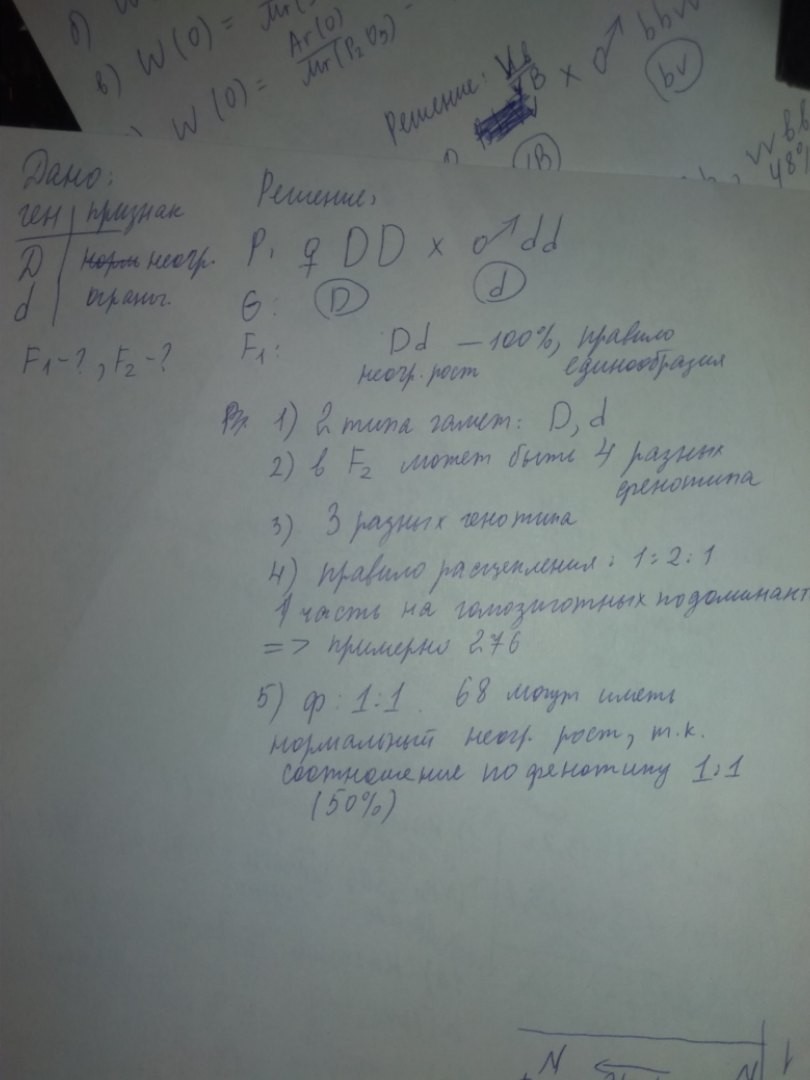 б)
в) W(O) =
Ar(O)
W(O) = Mr(P₂O₅)
Решение: Vb
vB x ♂ bbvv
bv
vvbb
48%
Дано:
ген | признак
D | неогр.
d | огранич.
F₁-?, F₂-?
Решение:
P: ♀ DD x ♂ dd
G: D d
F₁: Dd — 100%, правило
неогр. рост единообразия
1) 2 типа гамет: D, d
2) в F₂ может быть 4 разных
фенотипа
3) 3 разных генотипа
4) правило расщепления: 1:2:1
1 часть на гомозиготных по доминант
=> примерно 276
5) ф: 1:1. 68 могут иметь
нормальный неогр. рост, т.к.
соотношение по фенотипу 1:1
(50%)
N
N